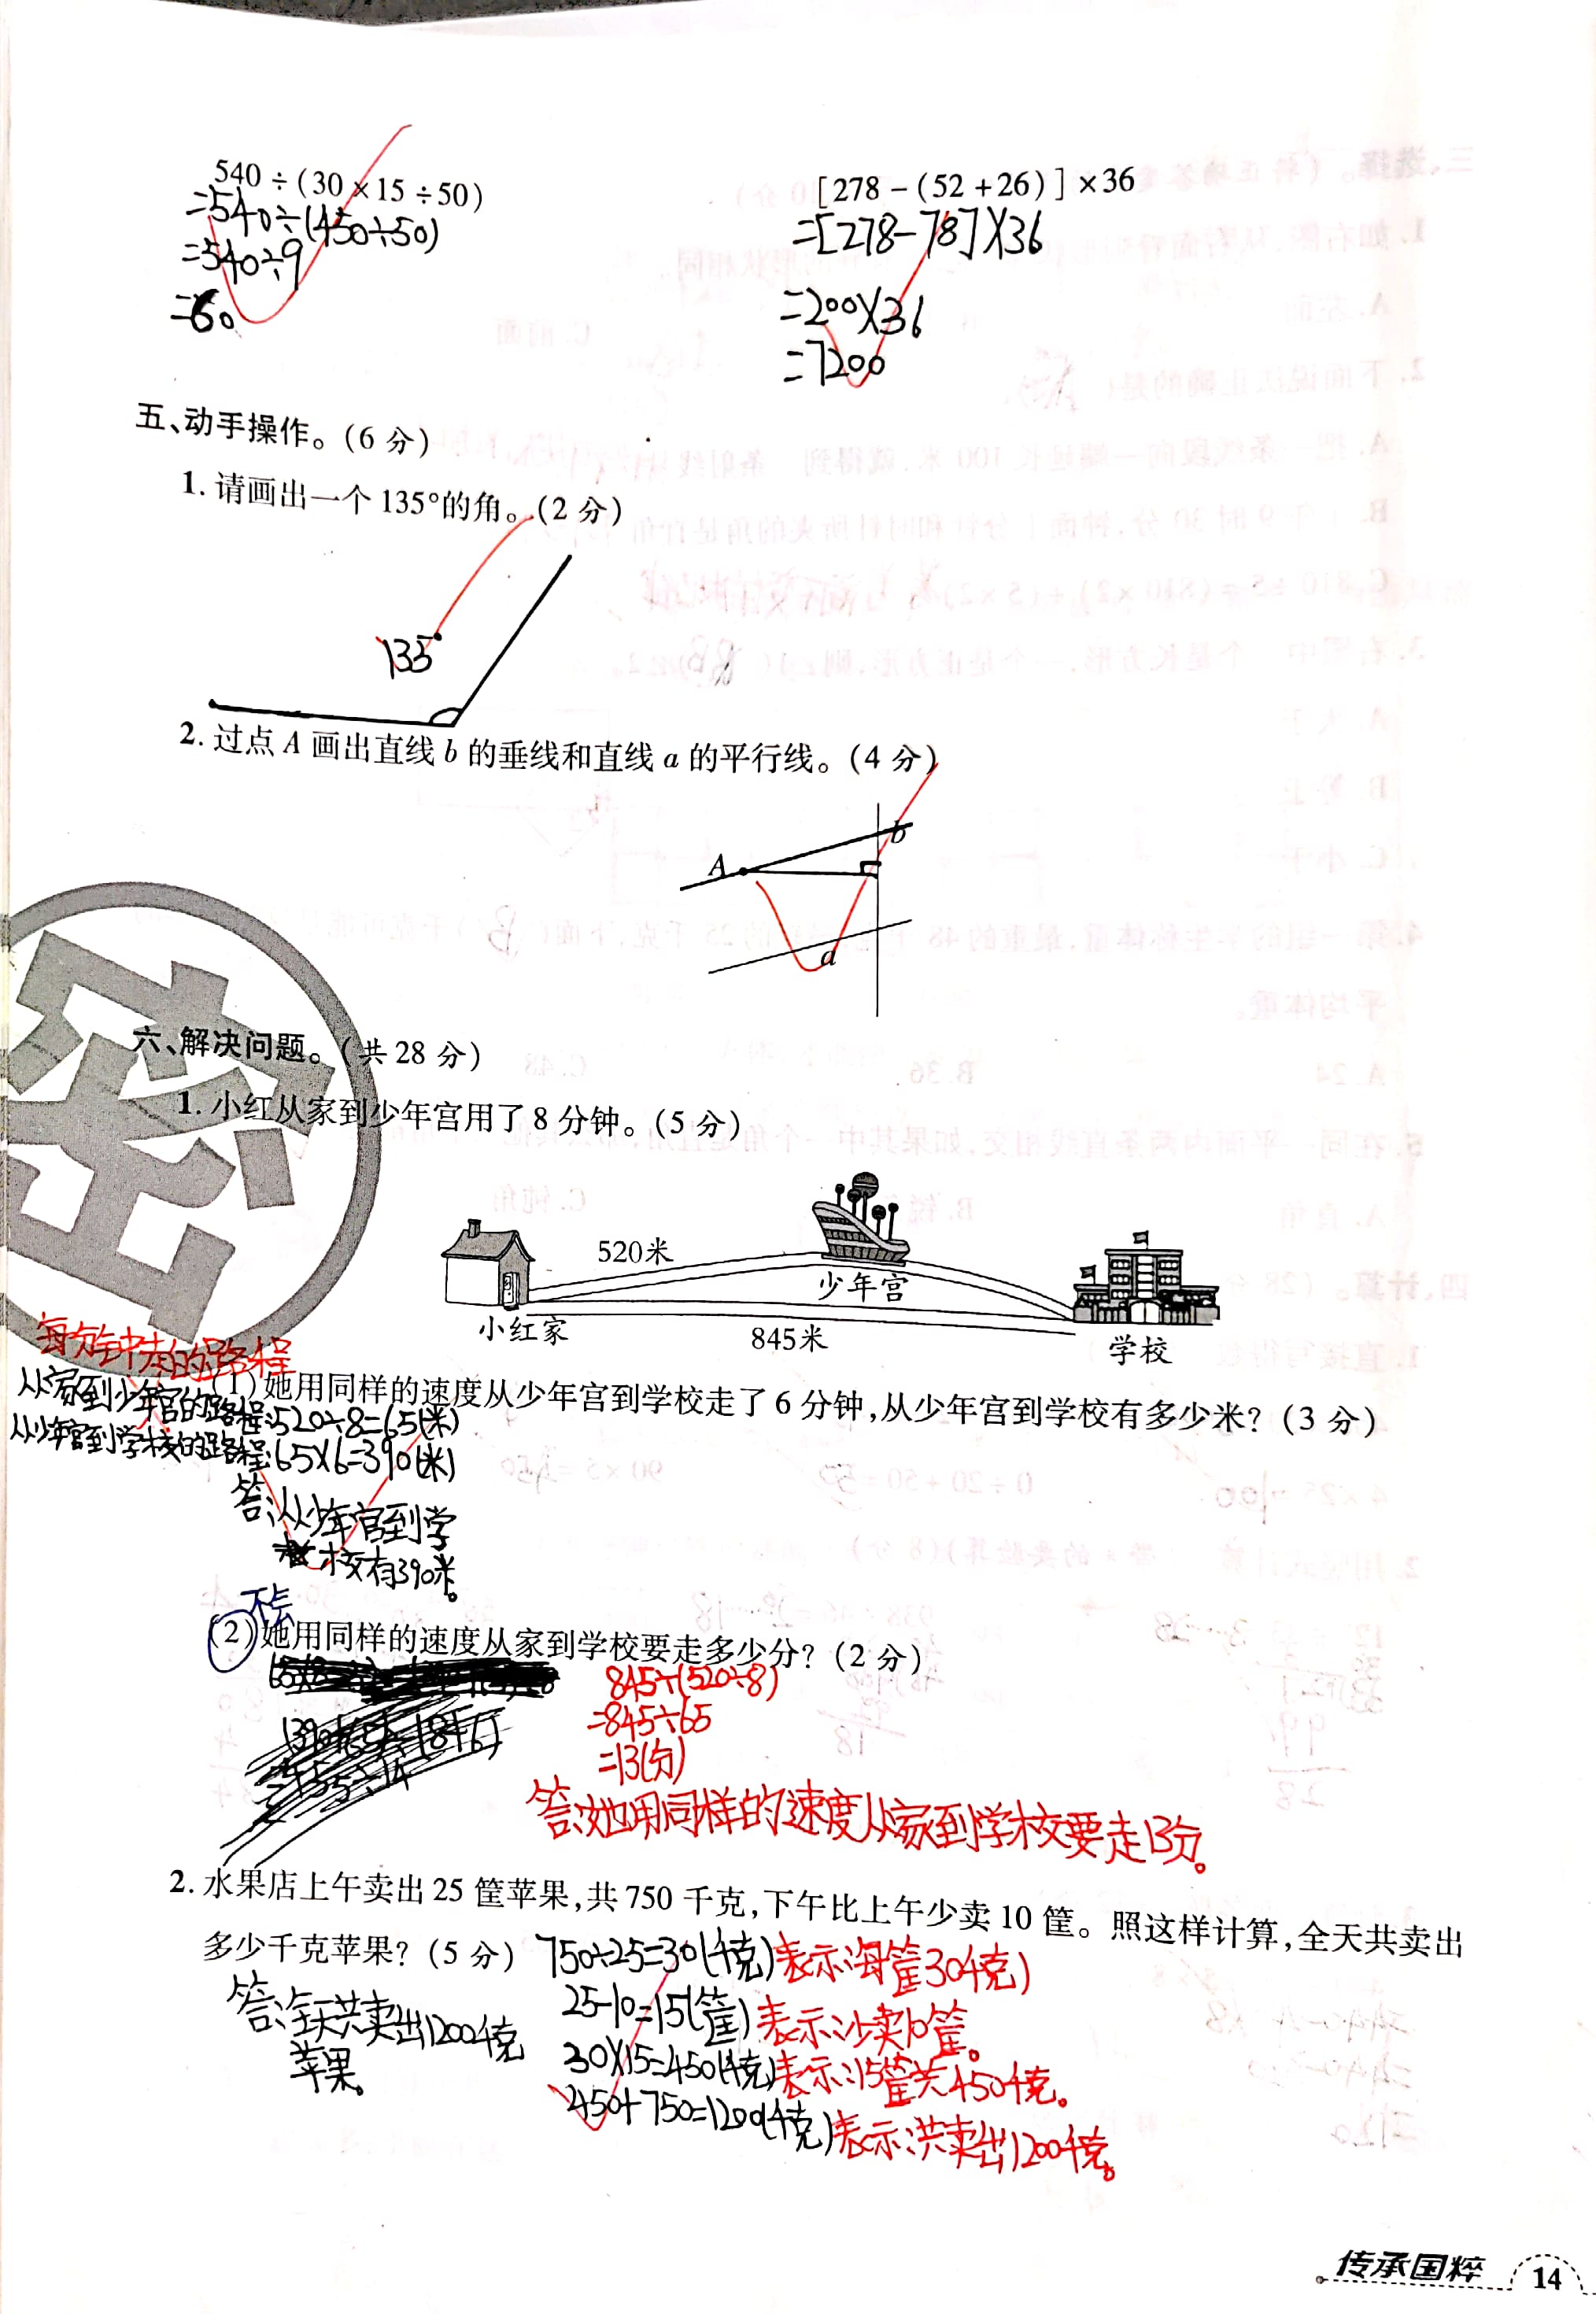 540÷(30×15÷50)
=540÷(450÷50)
=540÷9
=60
[278-(52+26)]×36
=[278-78]×36
=200×36
=7200
五、动手操作。(6分)
1.请画出一个135°的角。(2分)
135°
2.过点A画出直线b的垂线和直线a的平行线。(4分)
A
b
a
密
六、解决问题。(共28分)
1.小红从家到少年宫用了8分钟。(5分)
520米
少年宫
小红家
845米
学校
每分钟走的路程
(1)她用同样的速度从少年宫到学校走了6分钟,从少年宫到学校有多少米?(3分)
从家到少年宫的路程:520÷8=65(米)
从少年宫到学校的路程:65×6=390(米)
答:从少年宫到学
校有390米。
不会
(2)她用同样的速度从家到学校要走多少分?(2分)
845÷(520÷8)
=845÷65
=13(分)
答:她用同样的速度从家到学校要走13分。
2.水果店上午卖出25筐苹果,共750千克,下午比上午少卖10筐。照这样计算,全天共卖出
多少千克苹果?(5分)
750÷25=30(千克)表示:每筐30千克)
25-10=15(筐)表示:少卖10筐。
30×15=450(千克)表示:15筐共450千克。
450+750=1200(千克)表示:共卖出1200千克。
答:全天共卖出1200千克
苹果。
传承国粹
14